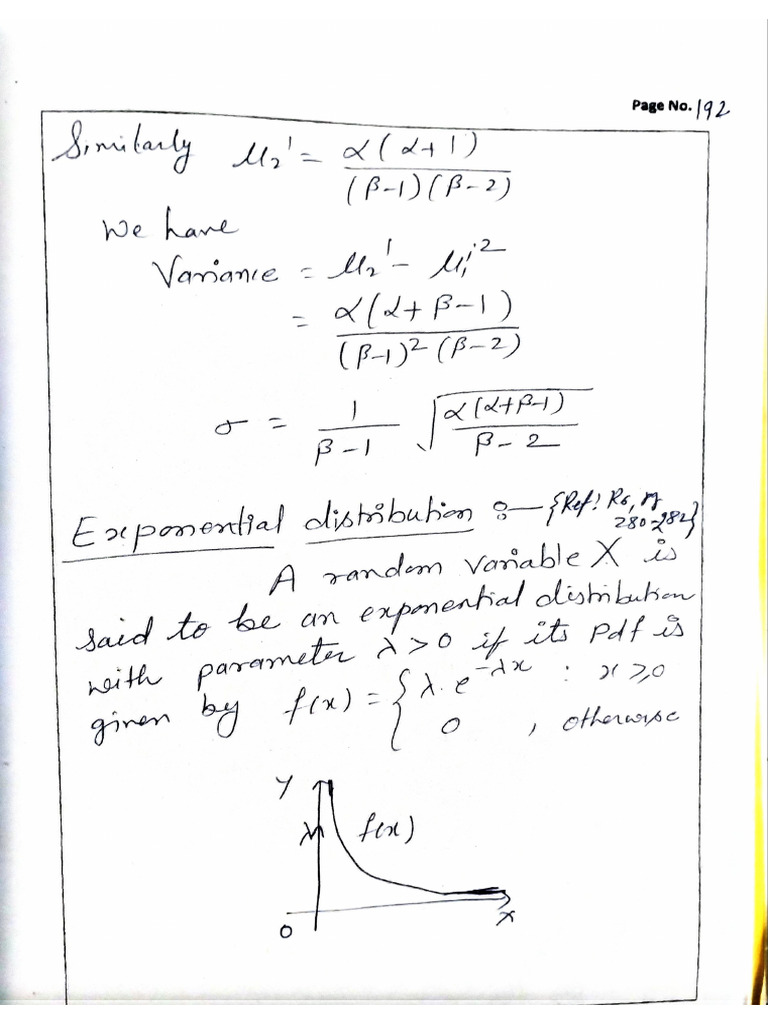 Page No. 192
Similarly μ₂' = α(α+1) / (β-1)(β-2)
We have
Variance = μ₂' - μ₁'²
= α(α+β-1) / (β-1)² (β-2)
σ = 1/(β-1) √(α(α+β-1) / (β-2))
Exponential distribution :— {Ref: R6, Pg 280-282}
A random variable X is
said to be an exponential distribution
with parameter λ>0 if its pdf is
given by f(x) = { λ.e^(-λx) : x≥0
0 , otherwise
y
λ f(x)
0 x